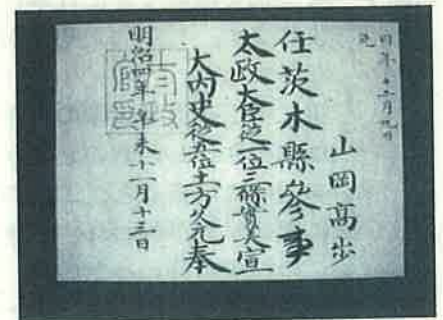 同年十二月九日
免
山岡高歩
任茨木縣參事
太政大臣從一位三條實美宣
大内史從五位土方久元奉
明治四年辛未十一月十三日